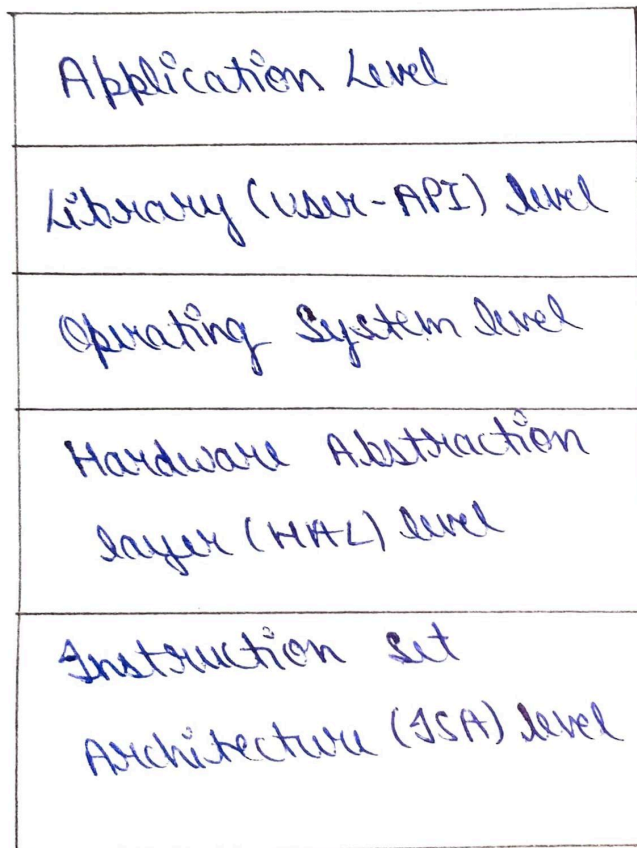 Application Level
Library (user-API) level
Operating System level
Hardware Abstraction
layer (HAL) level
Instruction set
Architecture (ISA) level